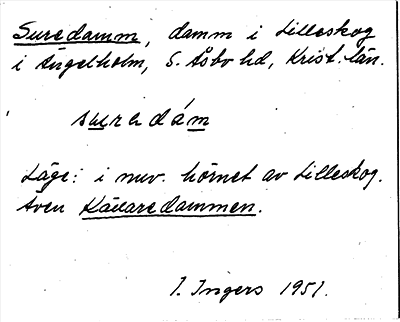 Suredamm, damm i Lilleskog
i Ängelholm, S. Åsbo hd, Krist. län.
surədám
Läge: i nuv. hörnet av Lilleskog.
Även Källaredammen.
I. Ingers 1951.